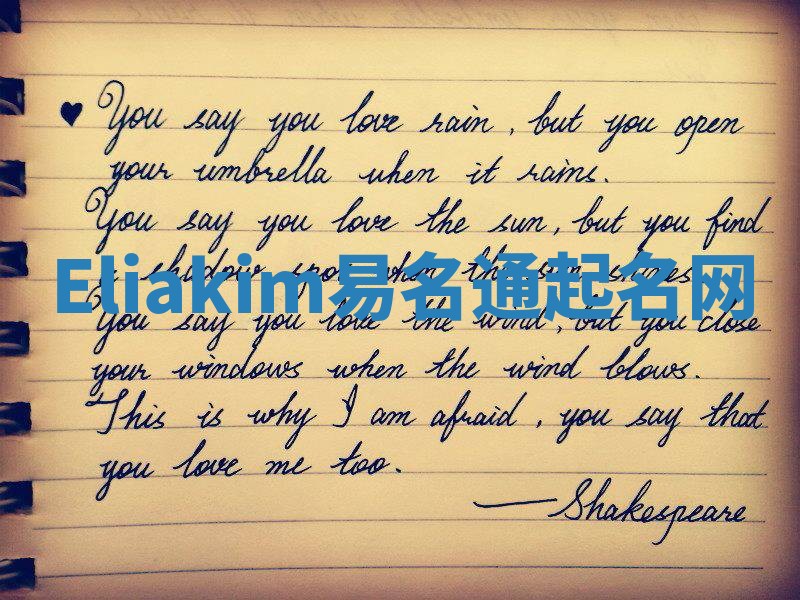 ♥ You say you love rain, but you open
your umbrella when it rains.
You say you love the sun, but you find
a shadow spot when the sun shines.
Eliakim易名通起名网
You say you love the wind, but you close
your windows when the wind blows.
This is why I am afraid, you say that
you love me too.
—Shakespeare